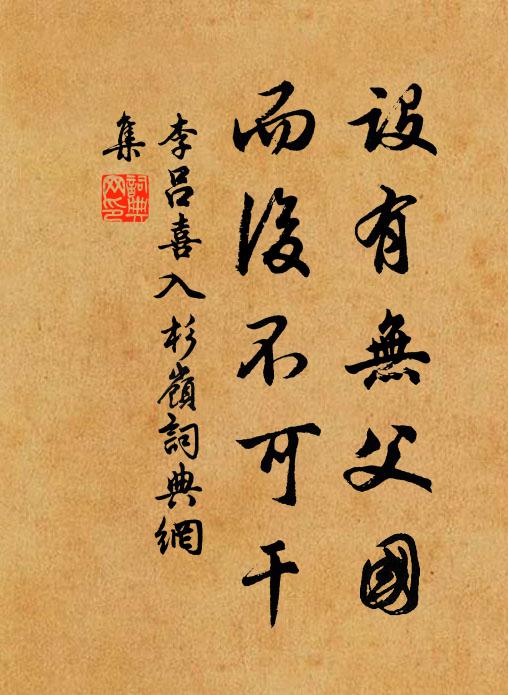 設有無父國
而後不可干
李呂喜入杉嶺詞典網
集
詞典網印